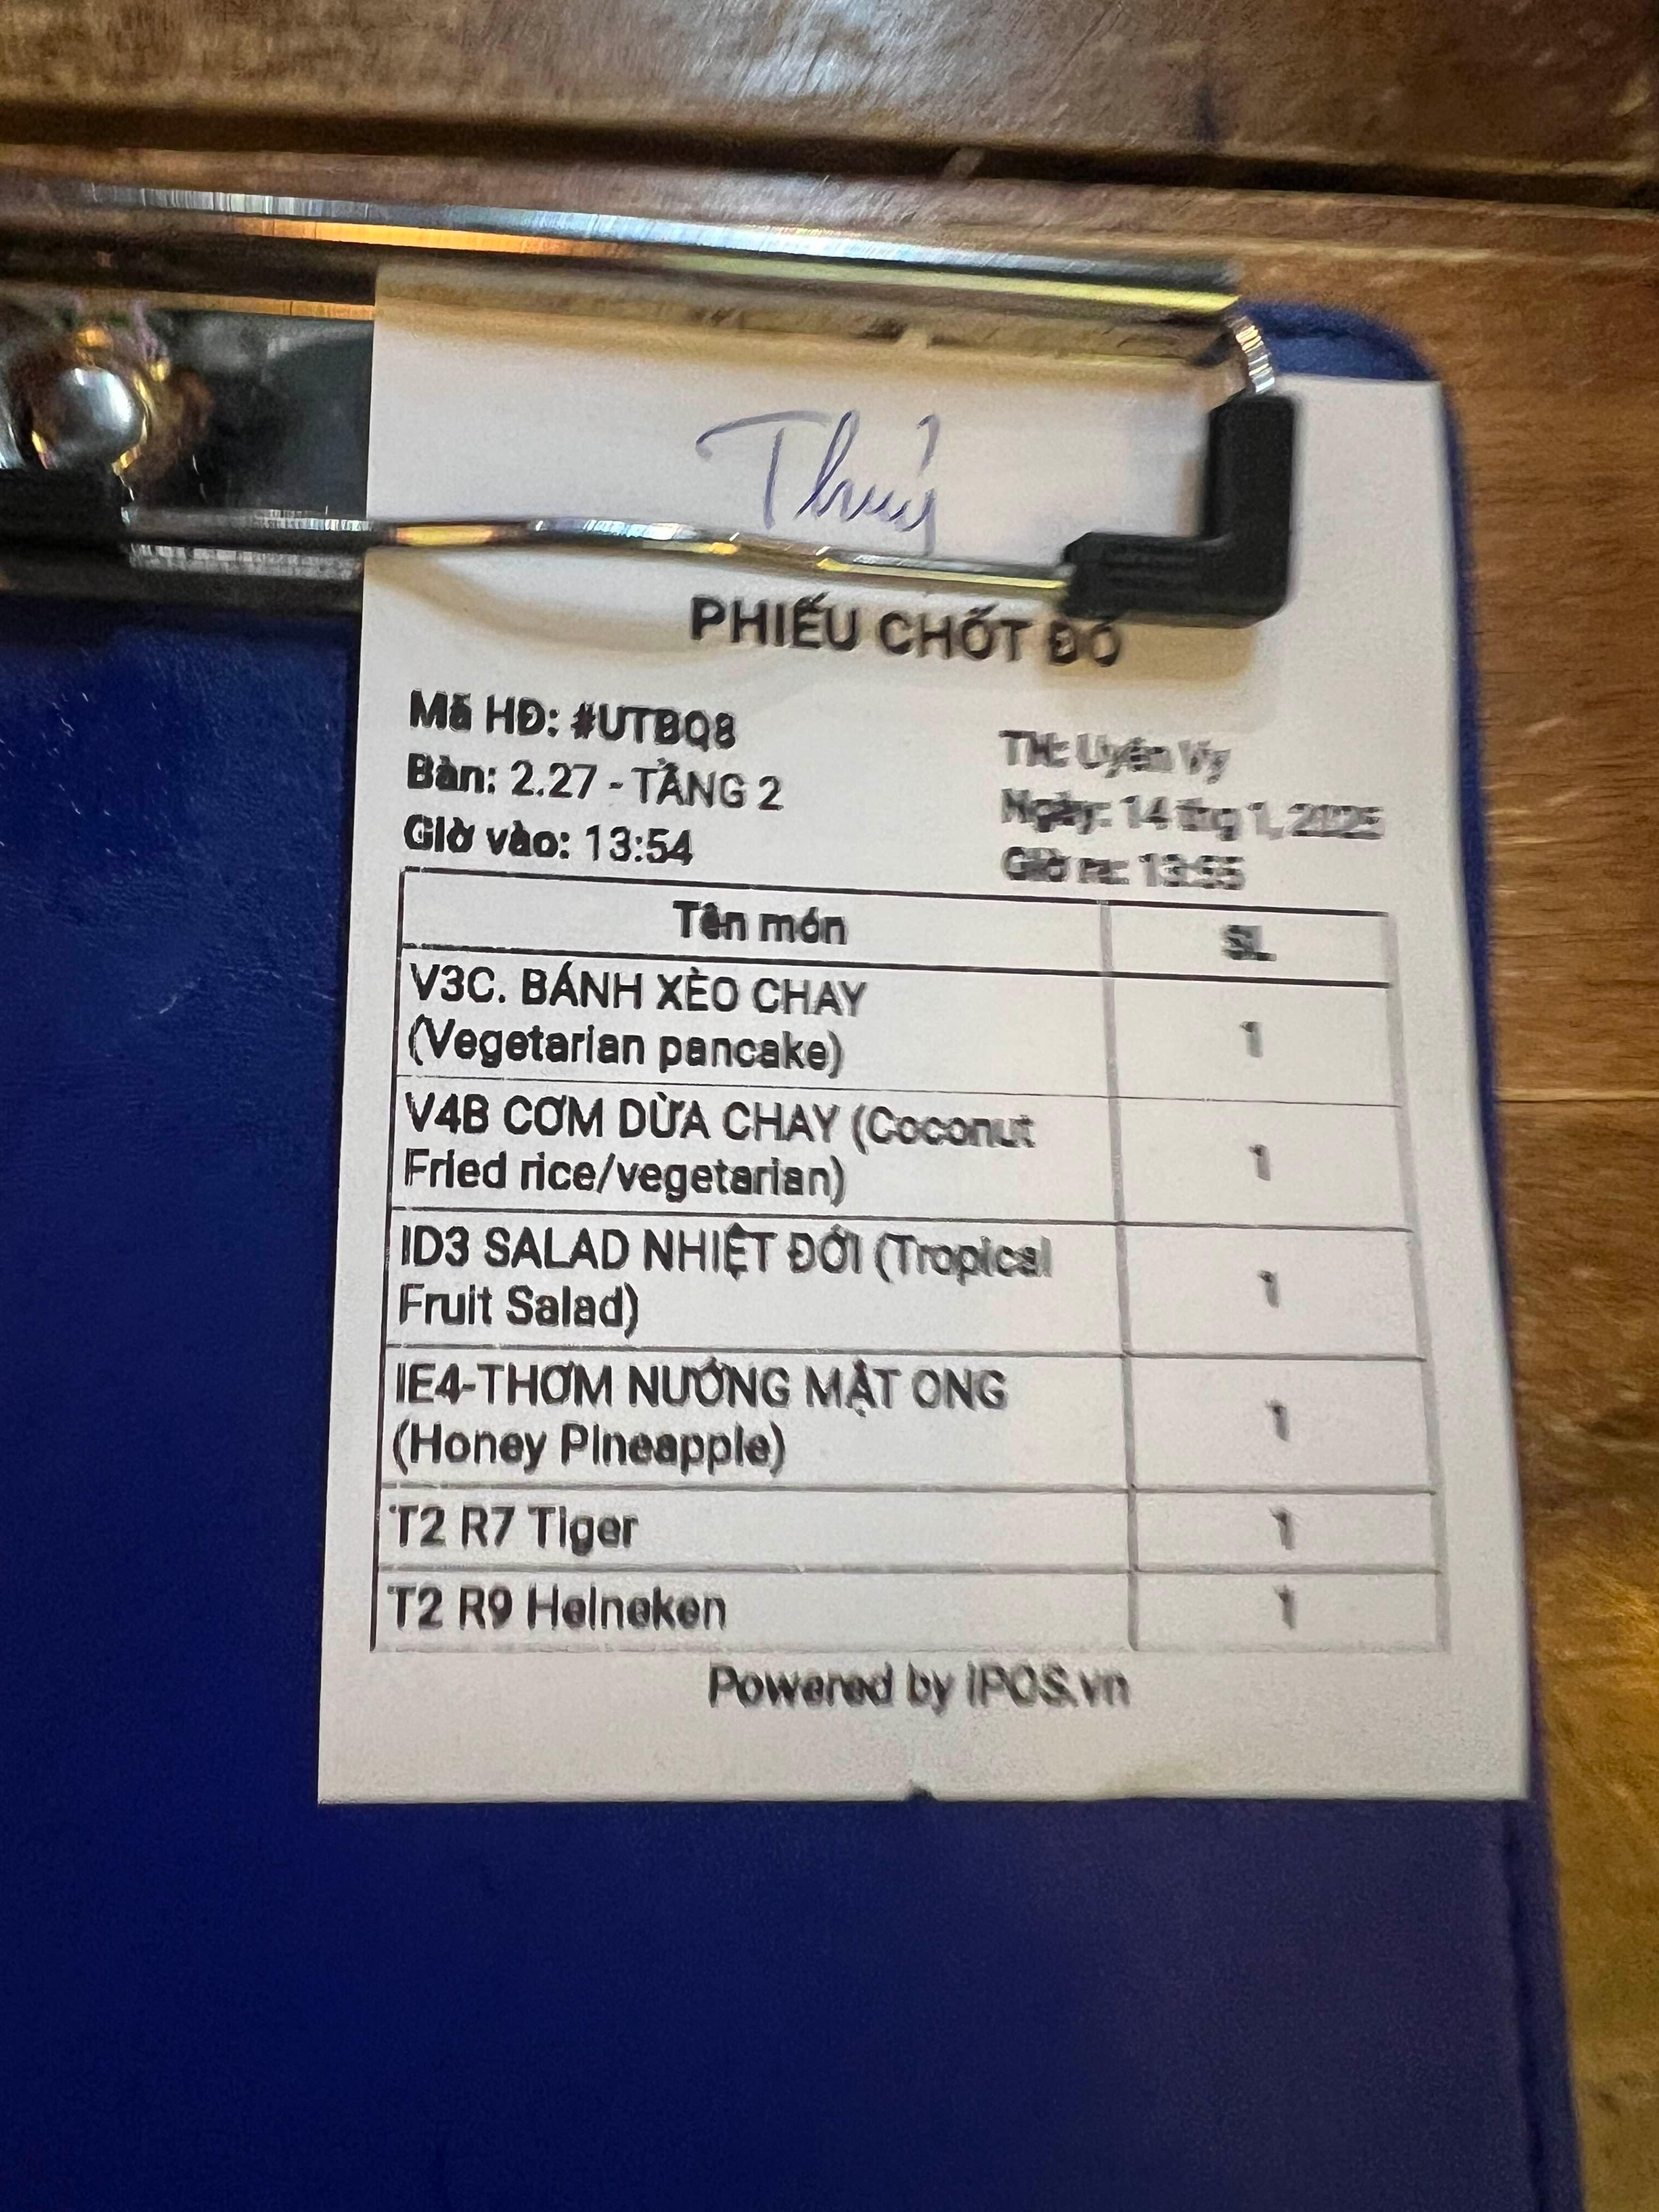 Thuý
PHIẾU CHỐT ĐỒ
Mã HĐ: #UTBQ8
TN: Uyên Vy
Bàn: 2.27 - TẦNG 2
Ngày: 14 thg 1, 2025
Giờ vào: 13:54
Giờ ra: 13:55
Tên món SL
V3C. BÁNH XÈO CHAY
(Vegetarian pancake) 1
V4B CƠM DỪA CHAY (Coconut
Fried rice/vegetarian) 1
ID3 SALAD NHIỆT ĐỚI (Tropical
Fruit Salad) 1
IE4-THƠM NƯỚNG MẬT ONG
(Honey Pineapple) 1
T2 R7 Tiger 1
T2 R9 Heineken 1
Powered by iPOS.vn